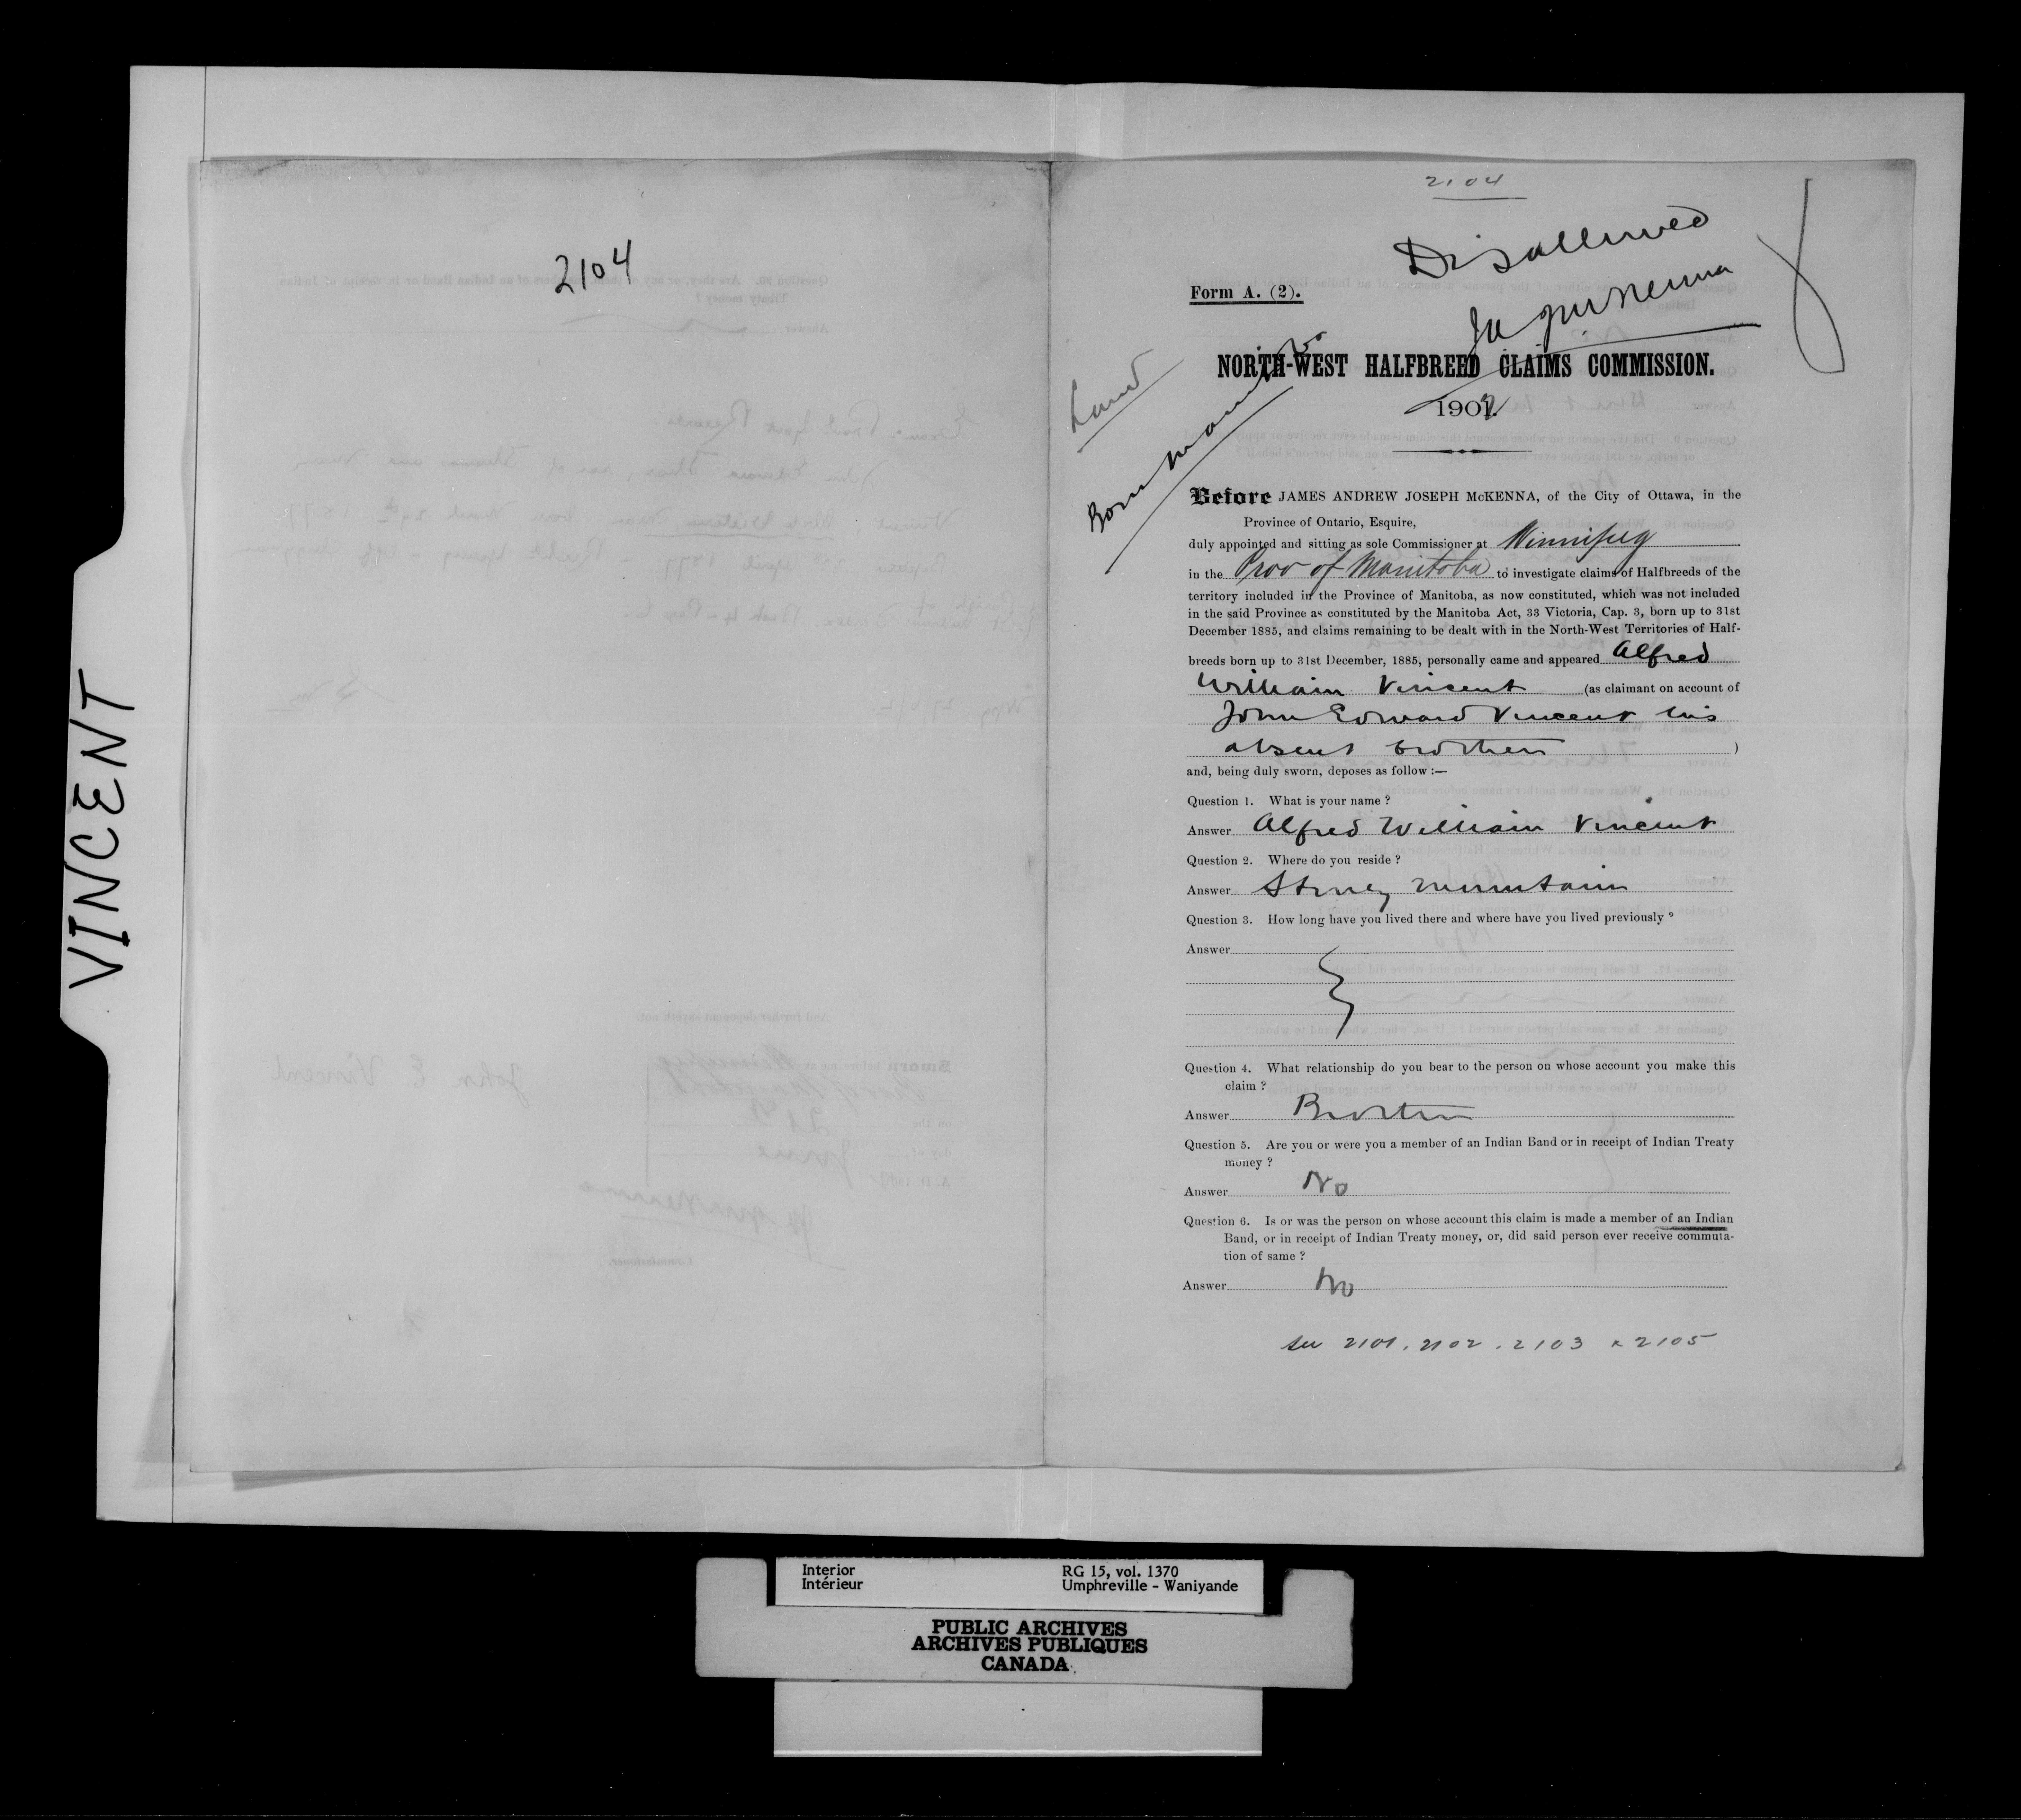 VINCENT
2104
2104
Disallowed
JAJ McKenna
Form A. (2).
Land
Born Manitoba
NORTH-WEST HALFBREED CLAIMS COMMISSION.
1901.
Before JAMES ANDREW JOSEPH McKENNA, of the City of Ottawa, in the
Province of Ontario, Esquire,
duly appointed and sitting as sole Commissioner at Winnipeg
in the Prov of Manitoba to investigate claims of Halfbreeds of the
territory included in the Province of Manitoba, as now constituted, which was not included
in the said Province as constituted by the Manitoba Act, 33 Victoria, Cap. 3, born up to 31st
December 1885, and claims remaining to be dealt with in the North-West Territories of Half-
breeds born up to 31st December, 1885, personally came and appeared Alfred
William Vincent (as claimant on account of
John Edward Vincent his
absent brother )
and, being duly sworn, deposes as follow :—
Question 1. What is your name ?
Answer Alfred William Vincent
Question 2. Where do you reside ?
Answer Stoney Mountain
Question 3. How long have you lived there and where have you lived previously ?
Answer
Question 4. What relationship do you bear to the person on whose account you make this
claim ?
Answer Brother
Question 5. Are you or were you a member of an Indian Band or in receipt of Indian Treaty
money ?
Answer No
Question 6. Is or was the person on whose account this claim is made a member of an Indian
Band, or in receipt of Indian Treaty money, or, did said person ever receive commuta-
tion of same ?
Answer No
See 2101. 2102. 2103 & 2105
Interior
Intérieur
RG 15, vol. 1370
Umphreville - Waniyande
PUBLIC ARCHIVES
ARCHIVES PUBLIQUES
CANADA